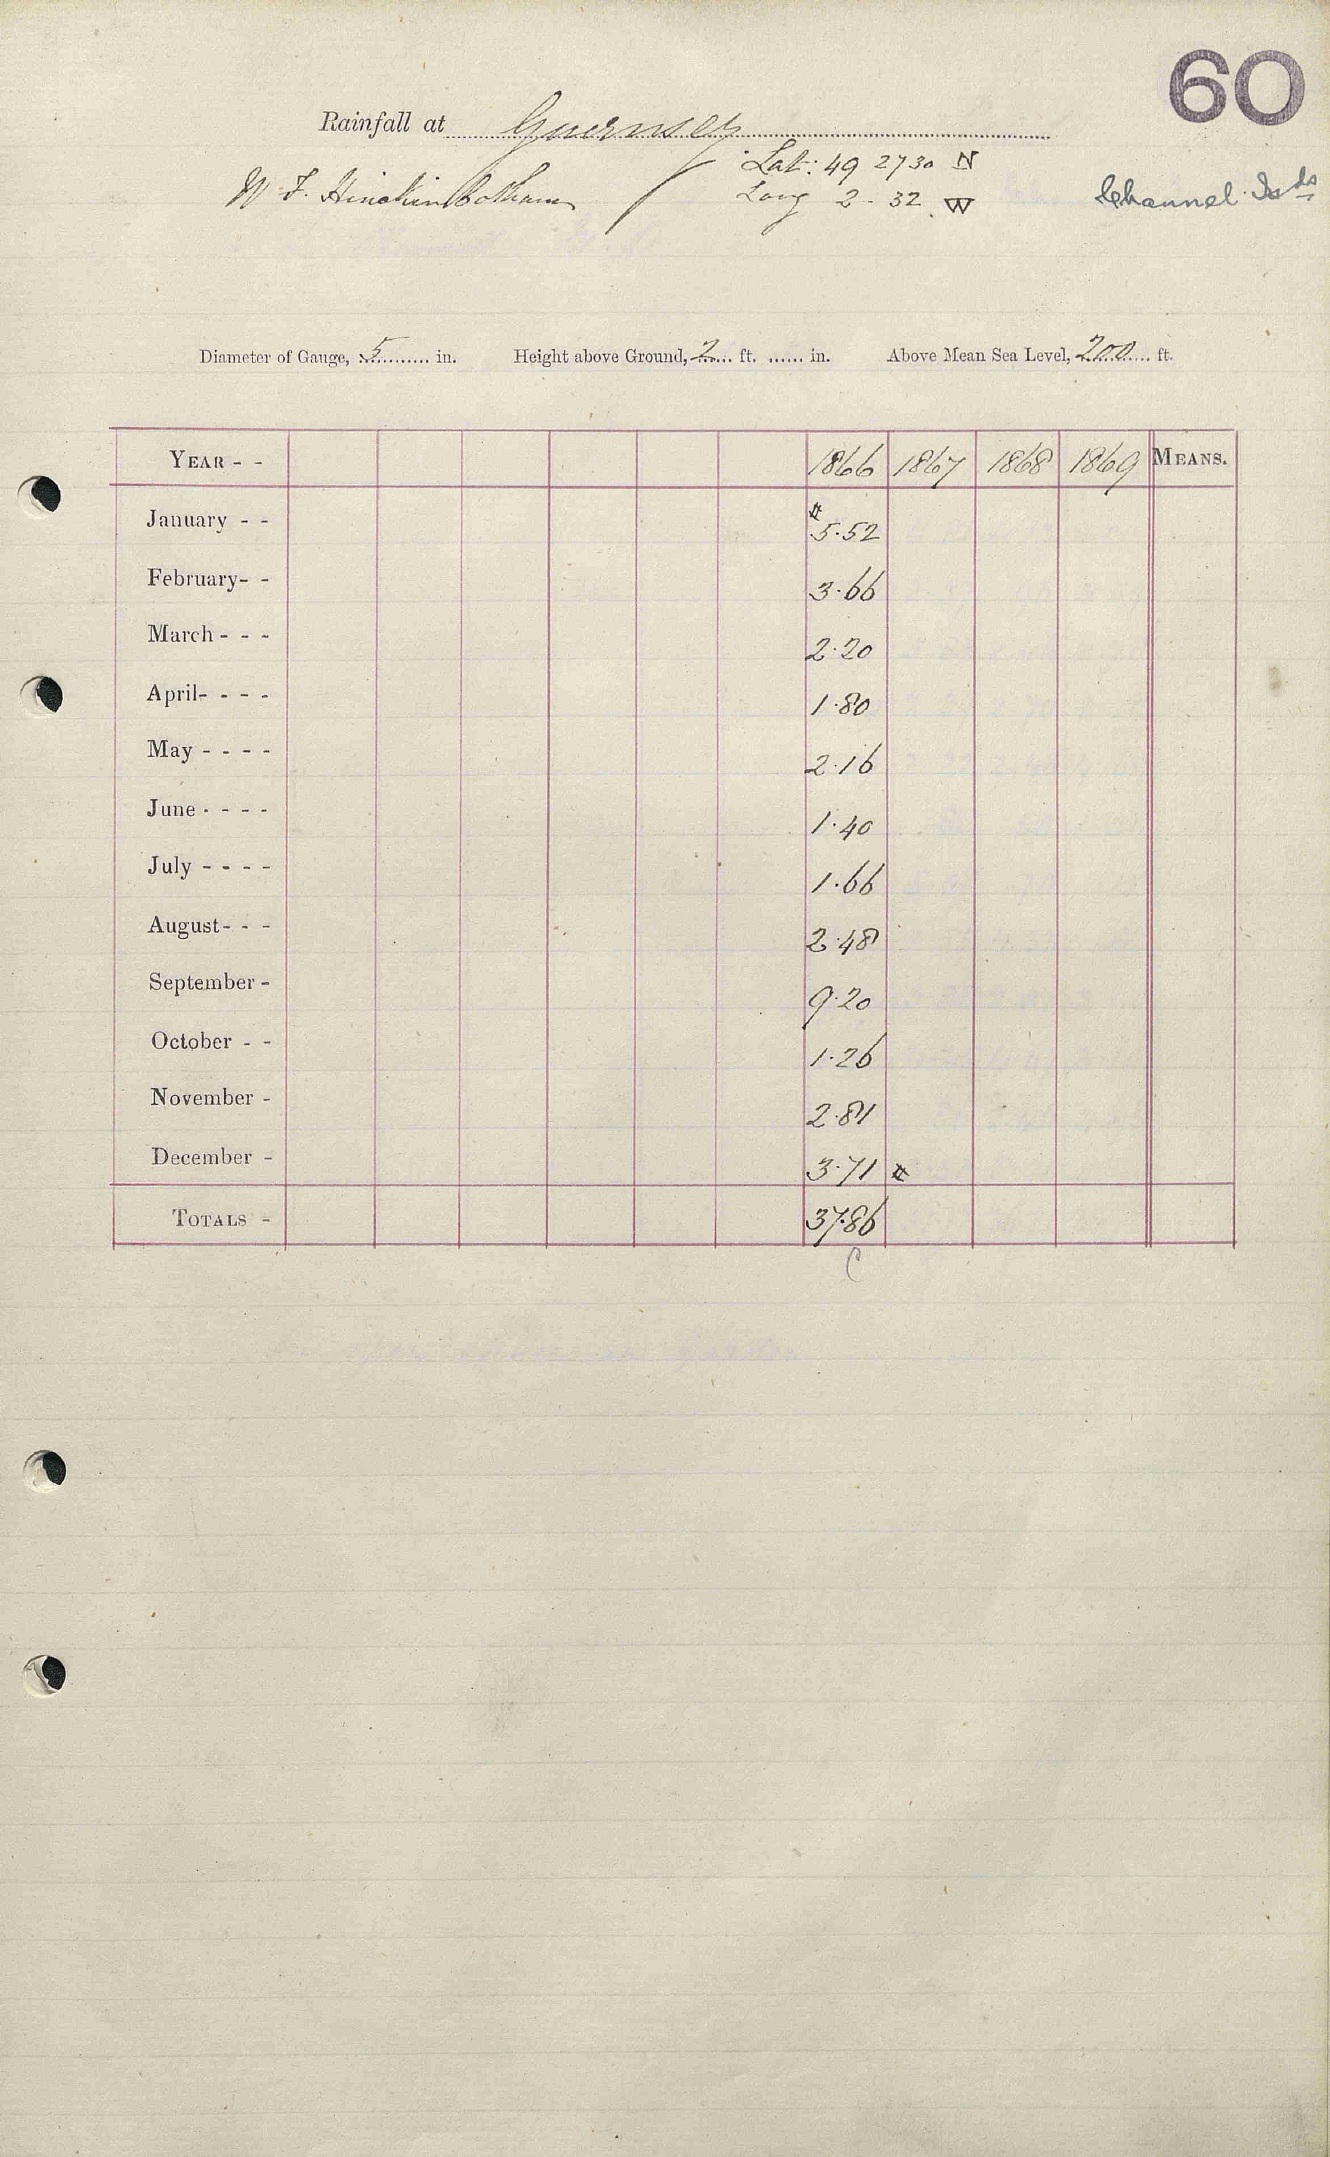 60
Rainfall at Guernsey
Lat: 49 27 30 N
W F. Hinchinbotham Long 2 - 32 W Channel Isds
Diameter of Gauge, 5 in. Height above Ground, 2 ft. ...... in. Above Mean Sea Level, 200 ft.
YEAR - - 1866 1867 1868 1869 MEANS.
January - - # 5.52
February - - 3.66
March - - - 2.20
April - - - - 1.80
May - - - - 2.16
June - - - - 1.40
July - - - - 1.66
August - - - 2.48
September - 9.20
October - - 1.26
November - 2.81
December - 3.71 #
TOTALS - 37.86
C